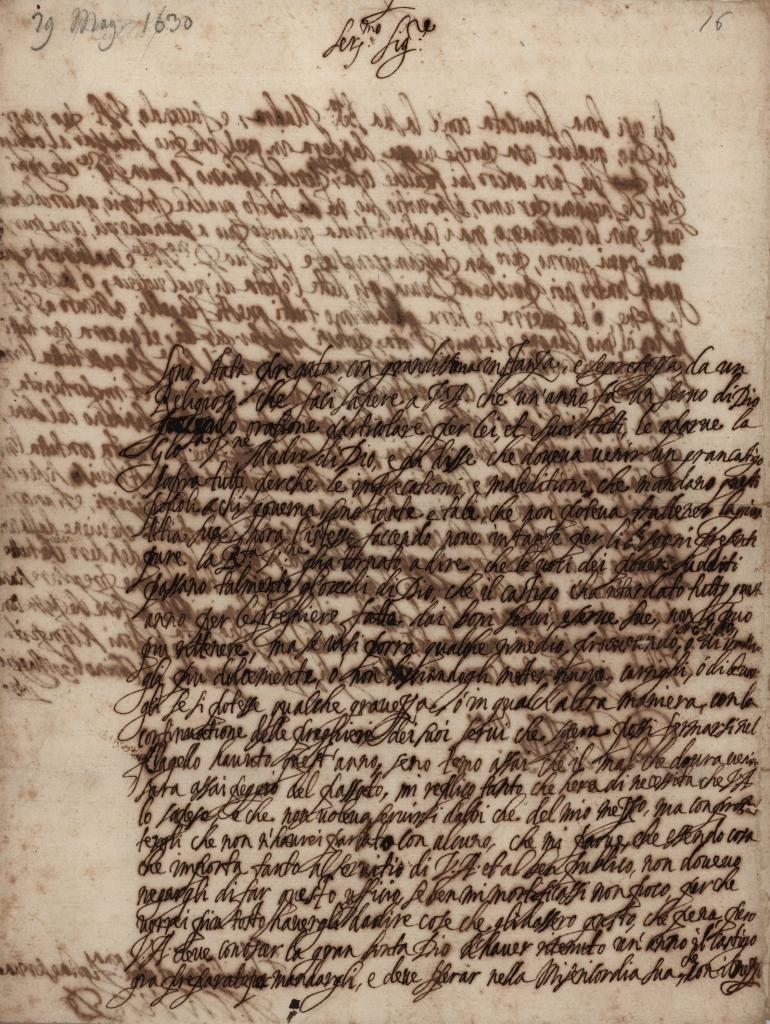 29 Mag. 1630
16
Ser.mo Sig.re
Sono stata pregata con grandissima instanza, e segretezza da un
Religioso che facci sapere a V.A. che un'anno fa un servo di Dio
facendo oratione particolare per lei, et i suoi stati, le aparve la
Glo.ma V.ne Madre di Dio, e gli disse che doveva venir un gran castigo
sopra tutti perche le imprecationi, e maleditioni, che mandano questi
popoli a chi governa, sono tante, e tale, che non poteva trattener la
sua. Hora l'istesso facendo nove instanze per li presenti
pure la V.ne gli a tornato a dire, che le voci dei poveri sudditi
passano talmente gl'orechi di Dio, che il castigo ch'a retardato tutto quest'
anno per le preghiere fatte dai boni servi, e serve sue, non lo può
più ritenere, ma se vi si porrà qualche rimedio,
gli più dolcemente, o non metter nuovi carrighi, ó di
gli se si potesse qualche gravezza, ó in qualch'altra maniera, con la
continuatione delle preghiere dei suoi servi che spera possi fermarsi nel
flagello havuto quest'anno, se no temo assai che il mal che dovrà venir
sara assai peggio del passato, mi replicò tanto che era di necessità che V.A.
lo sapesse, e che non voleva servirsi d'altri che del mio mezzo, ma con
che non n'haurei parlato con alcuno, che mi parve, che essendo cosa
che importa tanto al servitio di V.A. et al ben publico, non dovevo
negargli di far questo ufficio, se ben mi mortificassi non poco, perche
vorrei più tosto havergli da dire cose che gli dassero gusto, che pena, pero
V.A. deve conoscer la gran bontà Dio d'haver ritenuto un'anno il castigo
gia preparato per mandargli, e deve sperar nella Misericordia sua, che